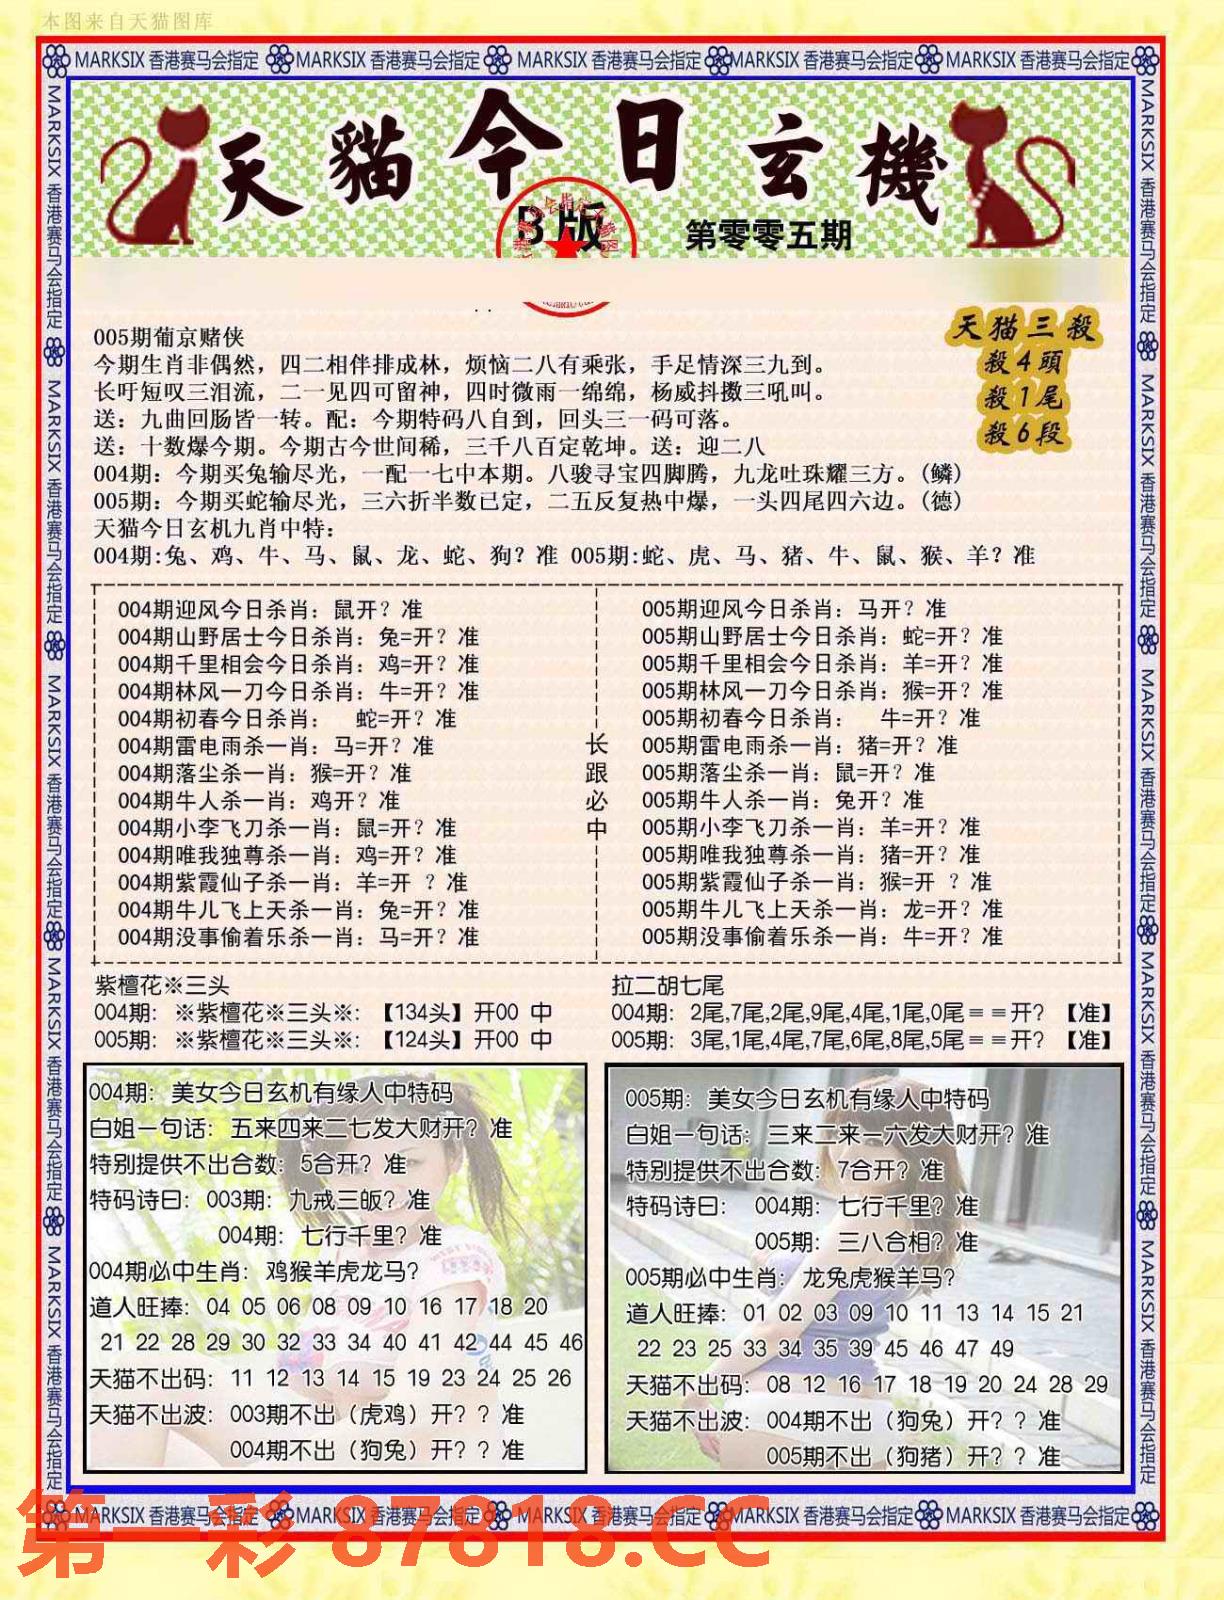 本图来自天猫图库
MARKSIX 香港赛马会指定 MARKSIX 香港赛马会指定 MARKSIX 香港赛马会指定 MARKSIX 香港赛马会指定 MARKSIX 香港赛马会指定
天貓今日玄機
B版
第零零五期
天猫三殺
殺4頭
殺1尾
殺6段
005期葡京赌侠
今期生肖非偶然，四二相伴排成林，烦恼二八有乘张，手足情深三九到。
长吁短叹三泪流，二一见四可留神，四时微雨一绵绵，杨威抖擞三吼叫。
送：九曲回肠皆一转。配：今期特码八自到，回头三一码可落。
送：十数爆今期。今期古今世间稀，三千八百定乾坤。送：迎二八
004期：今期买兔输尽光，一配一七中本期。八骏寻宝四脚腾，九龙吐珠耀三方。(鳞)
005期：今期买蛇输尽光，三六折半数已定，二五反复热中爆，一头四尾四六边。(德)
天猫今日玄机九肖中特：
004期:兔、鸡、牛、马、鼠、龙、蛇、狗？准 005期:蛇、虎、马、猪、牛、鼠、猴、羊？准
004期迎风今日杀肖：鼠开？准
004期山野居士今日杀肖：兔=开？准
004期千里相会今日杀肖：鸡=开？准
004期林风一刀今日杀肖：牛=开？准
004期初春今日杀肖： 蛇=开？准
004期雷电雨杀一肖：马=开？准
004期落尘杀一肖：猴=开？准
004期牛人杀一肖：鸡开？准
004期小李飞刀杀一肖：鼠=开？准
004期唯我独尊杀一肖：鸡=开？准
004期紫霞仙子杀一肖：羊=开 ？准
004期牛儿飞上天杀一肖：兔=开？准
004期没事偷着乐杀一肖：马=开？准
长跟必中
005期迎风今日杀肖：马开？准
005期山野居士今日杀肖：蛇=开？准
005期千里相会今日杀肖：羊=开？准
005期林风一刀今日杀肖：猴=开？准
005期初春今日杀肖： 牛=开？准
005期雷电雨杀一肖：猪=开？准
005期落尘杀一肖：鼠=开？准
005期牛人杀一肖：兔开？准
005期小李飞刀杀一肖：羊=开？准
005期唯我独尊杀一肖：猪=开？准
005期紫霞仙子杀一肖：猴=开 ？准
005期牛儿飞上天杀一肖：龙=开？准
005期没事偷着乐杀一肖：牛=开？准
紫檀花※三头
004期：※紫檀花※三头※:【134头】开00 中
005期：※紫檀花※三头※:【124头】开00 中
拉二胡七尾
004期：2尾,7尾,2尾,9尾,4尾,1尾,0尾＝＝开？【准】
005期：3尾,1尾,4尾,7尾,6尾,8尾,5尾＝＝开？【准】
004期：美女今日玄机有缘人中特码
白姐一句话：五来四来二七发大财开？准
特别提供不出合数：5合开？准
特码诗曰：003期：九戒三皈？准
004期：七行千里？准
004期必中生肖：鸡猴羊虎龙马？
道人旺捧：04 05 06 08 09 10 16 17 18 20
21 22 28 29 30 32 33 34 40 41 42 44 45 46
天猫不出码：11 12 13 14 15 19 23 24 25 26
天猫不出波：003期不出（虎鸡）开？？准
004期不出（狗兔）开？？准
005期：美女今日玄机有缘人中特码
白姐一句话：三来二来一六发大财开？准
特别提供不出合数：7合开？准
特码诗曰： 004期：七行千里？准
005期：三八合相？准
005期必中生肖：龙兔虎猴羊马？
道人旺捧：01 02 03 09 10 11 13 14 15 21
22 23 25 33 34 35 39 45 46 47 49
天猫不出码：08 12 16 17 18 19 20 24 28 29
天猫不出波：004期不出（狗兔）开？？准
005期不出（狗猪）开？？准
MARKSIX 香港赛马会指定 MARKSIX 香港赛马会指定 MARKSIX 香港赛马会指定 MARKSIX 香港赛马会指定 MARKSIX 香港赛马会指定
MARKSIX 香港赛马会指定 MARKSIX 香港赛马会指定 MARKSIX 香港赛马会指定 MARKSIX 香港赛马会指定 MARKSIX 香港赛马会指定
MARKSIX 香港赛马会指定 MARKSIX 香港赛马会指定 MARKSIX 香港赛马会指定 MARKSIX 香港赛马会指定 MARKSIX 香港赛马会指定
第一彩 87818.CC